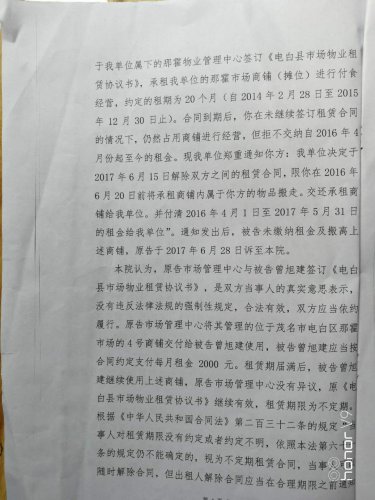 于我单位属下的那霍物业管理中心签订《电白县市场物业租
赁协议书》，承租我单位的那霍市场商铺（摊位）进行付食
经营，约定的租期为 20 个月（自 2014 年 2 月 28 日至 2015
年 12 月 30 日止）。合同到期后，你在未继续签订租赁合同
的情况下，仍然占用商铺进行经营，但拒不交纳自 2016 年 4
月份起至今的租金。现我单位郑重通知你方：我单位决定于
2017 年 6 月 15 日解除双方之间的租赁合同，限你在 2016 年
6 月 20 日前将承租商铺内属于你方的物品搬走。交还承租商
铺给我单位。并付清 2016 年 4 月 1 日至 2017 年 5 月 31 日
的租金给我单位”。通知发出后，被告未缴纳租金及搬离上
述商铺，原告于 2017 年 6 月 28 日诉至本院。
本院认为，原告市场管理中心与被告曾旭建签订《电白
县市场物业租赁协议书》，是双方当事人的真实意思表示，
没有违反法律法规的强制性规定，合法有效，双方应当依约
履行。原告市场管理中心将其管理的位于茂名市电白区那霍
市场的 4 号商铺交付给被告曾旭建使用，被告曾旭建应当按
合同约定支付每月租金 2000 元。租赁期届满后，被告曾旭
建继续使用上述商铺，原告市场管理中心没有异议，原《电
白县市场物业租赁协议书》继续有效，租赁期限为不定期。
根据《中华人民共和国合同法》第二百三十二条的规定，当
事人对租赁期限没有约定或者约定不明，依照本法第六十
条的规定仍不能确定的，视为不定期租赁合同，当事人
随时解除合同，但出租人解除合同应当在合理期限之前通
honor V9